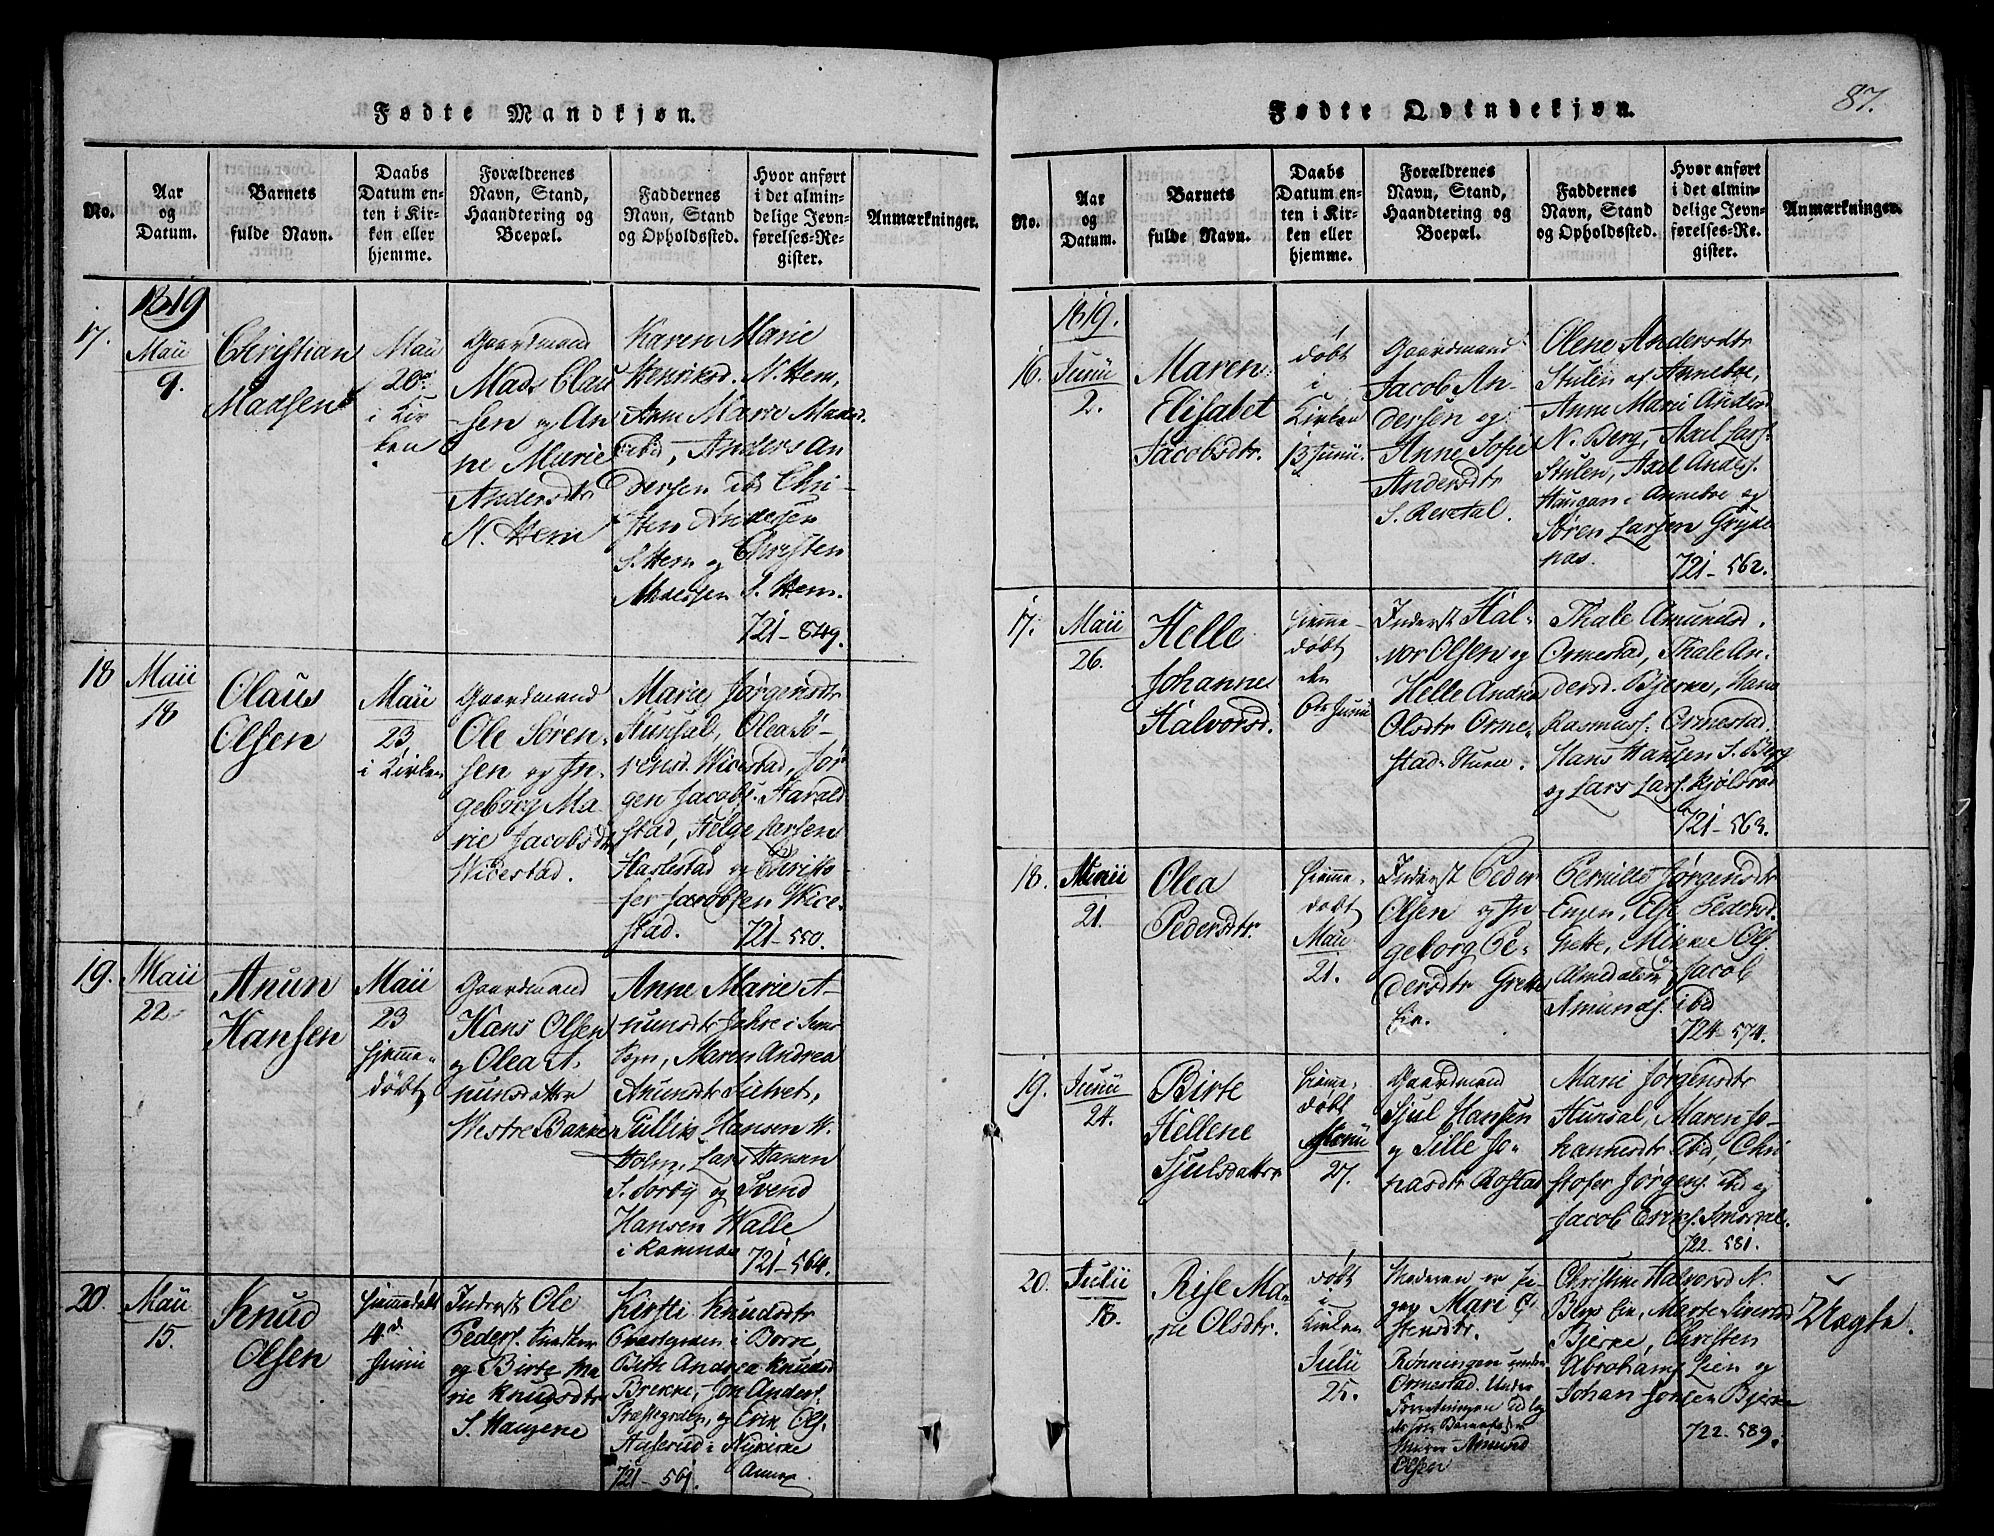 Fødte Mandkjøn.
No.
Aar
og
Datum.
Barnets
fulde Navn.
Daabs
Datum en-
ten i Kir-
ken eller
hjemme.
Forældrenes
Navn, Stand,
Haandtering og
Boepæl.
Faddernes
Navn, Stand
og Opholdssted.
Hvor anført
i det almin-
delige Jevn-
førelses-Re-
gister.
Anmærkninger.
1819
17.
Maii
9.
Christian
Madsen
Maii
20
i Kir
ken
Gaardmand
Mads Clau
sen og An
ne Marie
Andersdtr
N. Hem
Karen Marie
Henriksd. N. Hem,
Ann Marie Madsd.
ibid, Anders An
dersen ibd Chri-
sten Andersen
S. Hem og Christen
Madsen S. Hem.
721-549.
18
Maii
18
Olaus
Olsen
Maii
23
i Kirken
Gaardmand
Ole Søren-
sen og In-
geborg Ma-
rie Jacobsdtr
Wivestad.
Marie Jørgensdtr
Hunsal, Olea Sø-
rensd. Wivestad, Jør
gen Jacobs. Harald
stad, Helge Larsen
Haslestad og Christo-
fer Jacobsen Wive-
stad. 721-550.
19.
Maii
22
Anun
Hansen
Maii
23
hjemme-
døbt
Gaardmand
Hans Olsen
og Olea A-
nunsdatter
Westre Bakke
Anne Marie A-
nunsdtr Fahre i Sems
sogn, Maren Andrea
Anunsdtr
Tullik Hansen W.
Holm, Lars Hansen
S. Sørby og Svend
Hansen Walle
i Ramnæs 721-564.
20.
Maii
15.
Knud
Olsen
Hiemmedøbt
4de
Junii
Inderst Ole
Peders.
og Birte Ma
rie Knudsdtr
S. Haugene
Kirsti Knudsdtr
Præstegaden i Borre,
Birte Andrea Knudsd
Brekke, Jon Anders.
Præstegaden, og Erik Ols.
i Nykirke
721-561. Annex
Fødte Qvindekjøn.
87.
No.
Aar
og
Datum.
Barnets
fulde Navn.
Daabs
Datum en-
ten i Kir-
ken eller
hjemme.
Forældrenes
Navn, Stand,
Haandtering og
Boepæl.
Faddernes
Navn, Stand
og Opholdssted.
Hvor anført
i det almin-
delige Jevn-
førelses-Re-
gister.
Anmærkninger.
1819.
16.
Junii
2.
Maren
Elisabet
Jacobsdtr.
døbt
i
Kirken
13 Junii
Gaardmand
Jacob An-
dersen og
Anne Sofie
Andersdtr
S. Revetal.
Olene Andersdtr
Stulen af Annebøe,
Anne Marie Andersd
N. Berg, Axel Lars.
Stulen, Axel Anders.
Haugan i Annebøe og
Søren Larsen Gryde
næs. 721-562.
17.
Maii
26.
Helle
Johanne
Halvorsd.
Hiemme-
døbt
den
6te Junii
Inderst Hal-
vor Olsen og
Helle Andrea
Olsdtr Orme-
stad
Thale Amundsd.
Ormestad, Thale An-
dersd. Bjerke, Hans
Rasmuss. Ormestad.
Hans Hansen S. Berg
og Lars Lars. Kjølsrød
721-563.
18.
Maii
21.
Olea
Pedersdtr.
Hiemme-
døbt
Maii
21.
Inderst Peder
Olsen og In-
geborg Pe-
dersdtr Grette
Eie.
Pernille Jørgensdtr
Engen, Else Pedersd.
Grette, Mikkel Ols.
Almedalen, Jacob
Amunds. ibid
724-574.
19.
Junii
24.
Birte
Hellene
Sjulsdatter
Hiemme-
døbt
Junii
27.
Gaardmand
Sjul Hansen
og Sille Jo-
nasdtr Rostad
Marie Jørgensdtr
Hunsal, Maren Jo-
hannesdtr Ibid, Chri
stofer Jørgens. Ibd og
Jacob Eriks.
722-581.
20.
Julii
18.
Rise Ma-
rie Olsdtr.
døbt
i
Kirken
Julii
25.
Moderen er Pi-
gen Mari Ø-
stensdtr.
Rønningen under
Ormestad. Under
Forretningen udlag
des som Barnefader
Amund
Olsen
Christine Halvorsd N.
Berg Eie, Marte Siversd
Bjerke, Christen
Abrahams. Lien og
Johan Jonsen Bjerke
722-589.
Uægte.